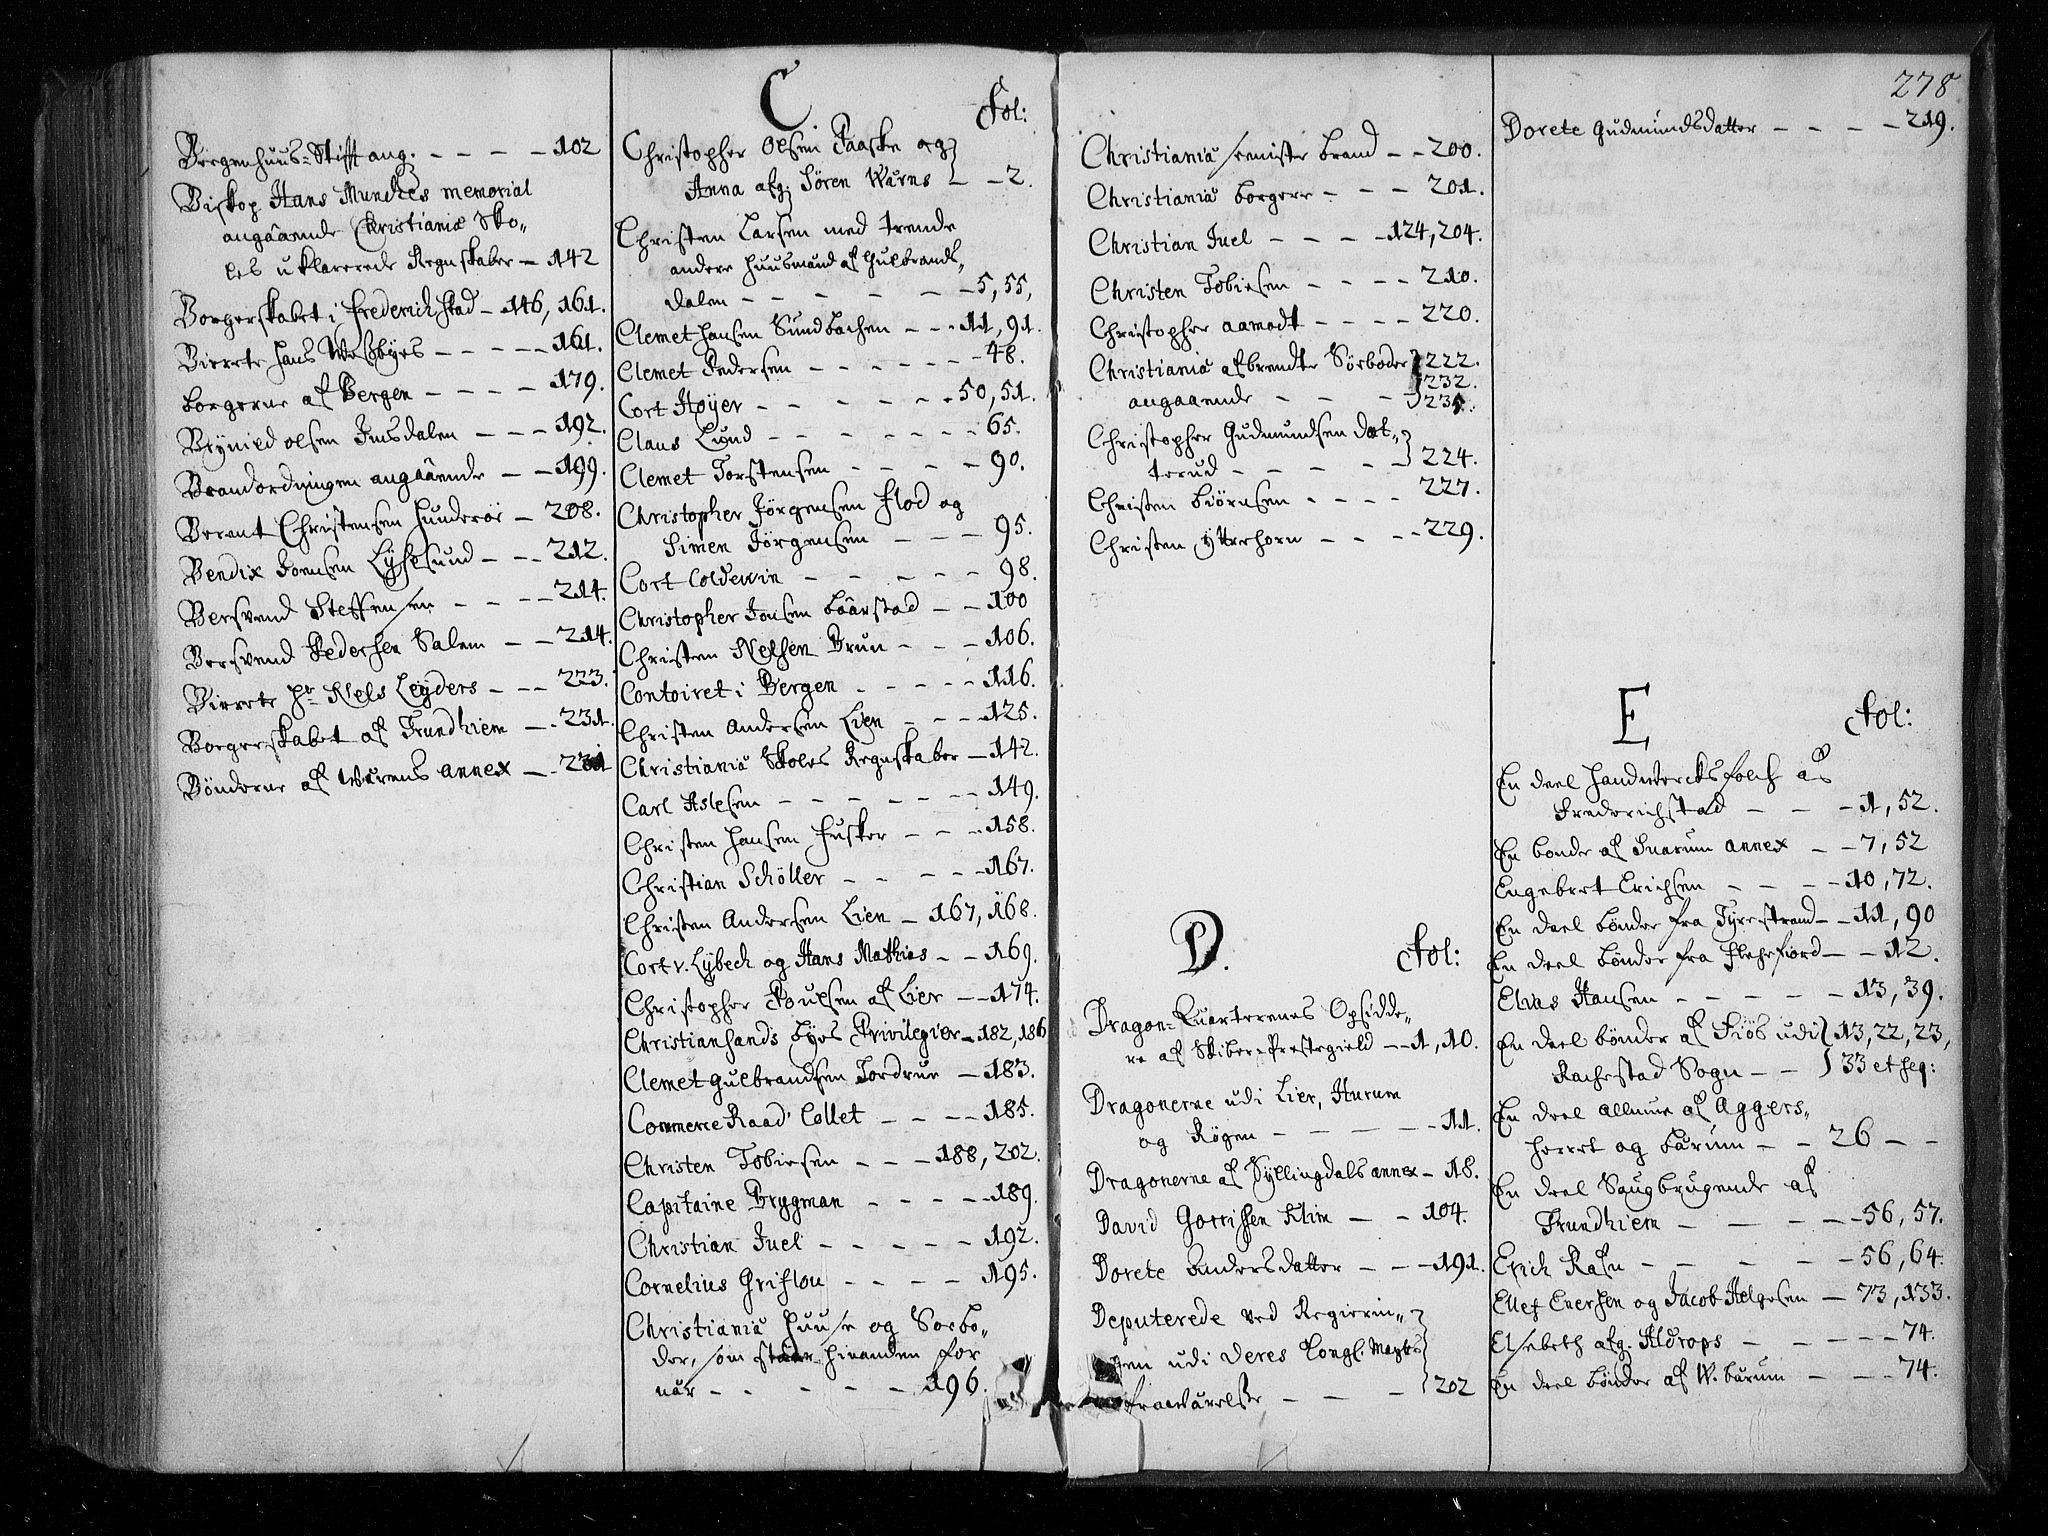 Bergenhuus-Stifft ang. - - - - 102
Biskop Hans Munches memorial
angaaende Christianiæ Sko-
les uklarerede Regnskaber - 142
Borgerskabet i Frederichstad - 146, 161.
Birrete Hans Weßbyes - - - - - 161.
borgerne af Bergen - - - - 179.
Brynild olsen Jmsdalen - - - 192.
Brandordningen angaaende - - 199.
Berent Christensen Hunderöe - 208.
Bendix Joensen Lyhesund - - - 212.
Bersvend Steffensen - - - - 214.
Bersvend Pedersen Salem - - 214.
Birrete Hr Niels Leyders - - - 223.
Borgerskabet af Trundhiem - - 231.
Bönderne af Warens annex - - 231
C
Fol:
Christopher Olsen Faaske og
Anna afg. Sören Warns - - 2.
Christen Larsen med trende
andere huusmænd af Gulbrands-
dalen - - - - - - 5, 55,
Clemet Hansen Sundbachen - - - 11, 91.
Clemet Pedersen - - - - - - 48.
Cort Høyer - - - - - - 50, 51.
Claus Lund - - - - - - - 65.
Clemet Torstensen - - - - - 90.
Christopher Jörgensen Flod og
Simen Jörgensen - - - 95.
Cort Coldewin - - - - - 98.
Christopher Jonsen baarstad - - 100
Christen Nelsen Brun - - - 106.
Contoiret i Bergen - - - - - 116.
Christen Andersen Lien - - - - 125.
Christianiæ Skoles Regnskaber - 142.
Carl Aslesen - - - - - - - 149.
Christen Hansen Fusker - - - 158.
Christian Schöller - - - - - 167.
Christen Andersen Lien - 167, 168.
Cort v. Lybech og Hans Mathias - - 169.
Christopher Poulsen af Lier - - 174.
Christiansands byes Privilegier - 182, 186
Clemet gulbrandsen Tordrue - 183.
Commerce Raad Collet - - - - 185.
Christen Tobiesen - - - 188, 202.
Capitaine Brygman - - - - - 189.
Christian Juel - - - - - 192.
Cornelius Grislou - - - - 195.
Christianiæ Huuse og Soebo-
der, som staar hinanden for
nær - - - - - 196.
Christianiæ seeniste brand - - 200.
Christianiæ borgere - - - - 201.
Christian Juel - - - - 124, 204.
Christen Tobiesen - - - - 210.
Christopher aamodt - - - - 220.
Christianiæ afbrendte Söeboder 222.
232.
angaaende - - - 235.
Christopher Gudmundsen Dat-
terud - - - - - 224.
Christen biörnsen - - - - 227.
Christen ytterhorn - - - - 229.
D.
Fol:
Dragon-Quarterenes Opsidde-
re af Skiber-Prestegield - - 1, 10.
Dragonerne udi Lier, Hurum
og Røgen - - - - - 11.
Dragonerne af Syllingdals annex - 18.
David Gorrissen Klim - - - 104.
Dorete bindersdatter - - - 191.
Deputerede ved Regierin-
gen udi Deres Kongl. Mayts
fraværelse - - - 202
278
Dorete Gudmundsdatter - - - - 219.
E
Fol:
En deel Handwercksfolch af
Frederichstad - - - 1, 52.
En bonde af Snarum annex - - 7, 52
Engebret Erichsen - - - - 10, 72.
En deel bönder fra Tyrestrand - - 11, 90
En deel bönder fra Flechefiord - - 12.
Elias Hansen - - - - - 13, 39.
En deel bönder af Fiöb udi 13, 22, 23,
Rachestad Sogn - - 33 et seq:
En deel allmue af Aggers-
herret og bærum - - 26 - -
En deel Saugbrugende af
Trundhiem - - - - - 56, 57.
Erich Rafn - - - - - 56, 64.
Ellef Eversen og Jacob Helgesen - 73, 133.
Elsebeth afg. Aldrops - - - - - 74.
En deel bönder af W. bærum - - - 74.